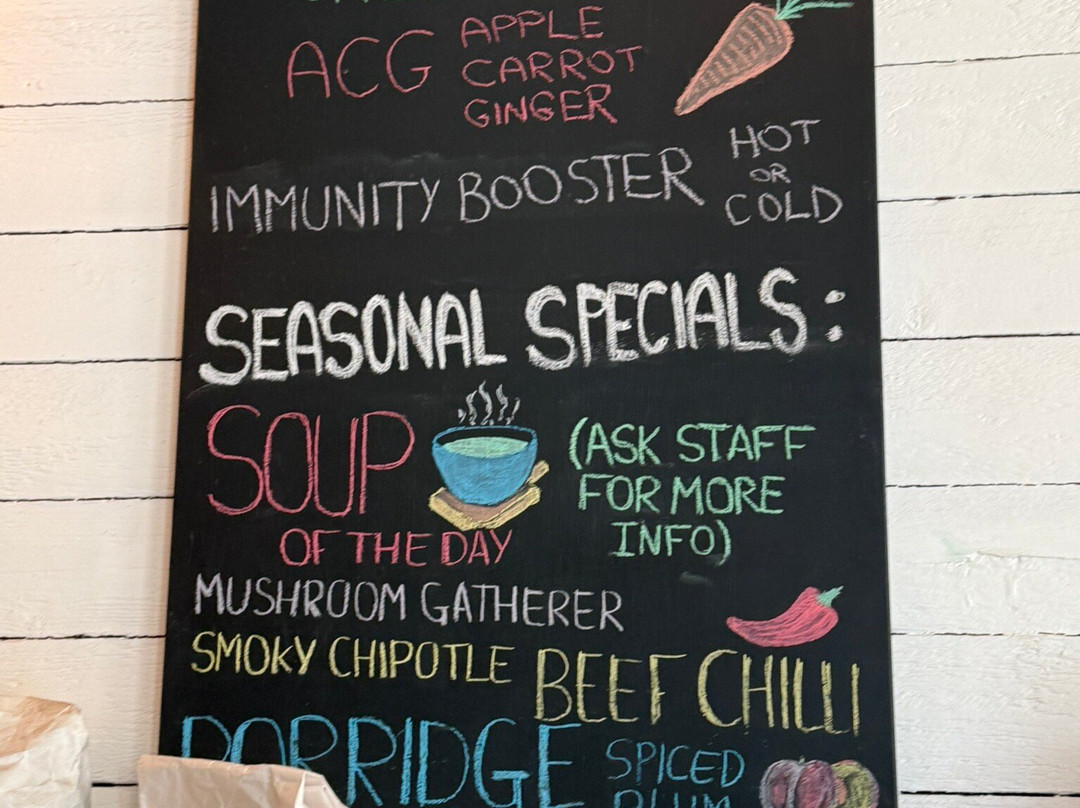 ACG APPLE
CARROT
GINGER
IMMUNITY BOOSTER HOT
OR
COLD
SEASONAL SPECIALS:
SOUP
OF THE DAY
(ASK STAFF
FOR MORE
INFO)
MUSHROOM GATHERER
SMOKY CHIPOTLE BEEF CHILLI
PORRIDGE SPICED
PLUM